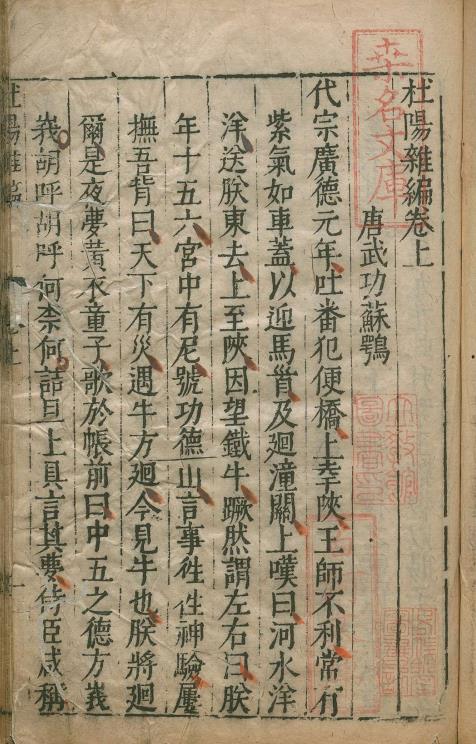 杜陽雜編卷上
唐武功蘇鶚
代宗廣德元年吐番犯便橋上幸陜王師不利常有
紫氣如車蓋以迎馬首及廻潼關上嘆曰河水洋
洋送朕東去上至陜因望鐵牛蹶然謂左右曰朕
年十五六宮中有尼號功德山言事徃徃神驗屢
撫吾背曰天下有災遇牛方廻今見牛也朕將廻
爾是夜夢黃衣童子歌於帳前曰中五之德方峩
峩胡呼胡呼何柰何詰旦上具言其夢侍臣咸稱
桒名文庫
杜陽雜編